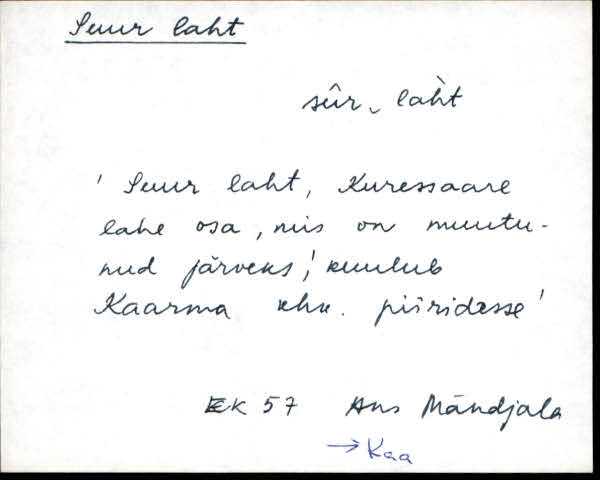 Suur laht
sûr ̮ làht
' Suur laht, Kuressaare
lahe osa, mis on muutu-
nud järveks; kuulub
Kaarma khk. piiridesse'
EK 57 Ans Mändjala
→ Kaa